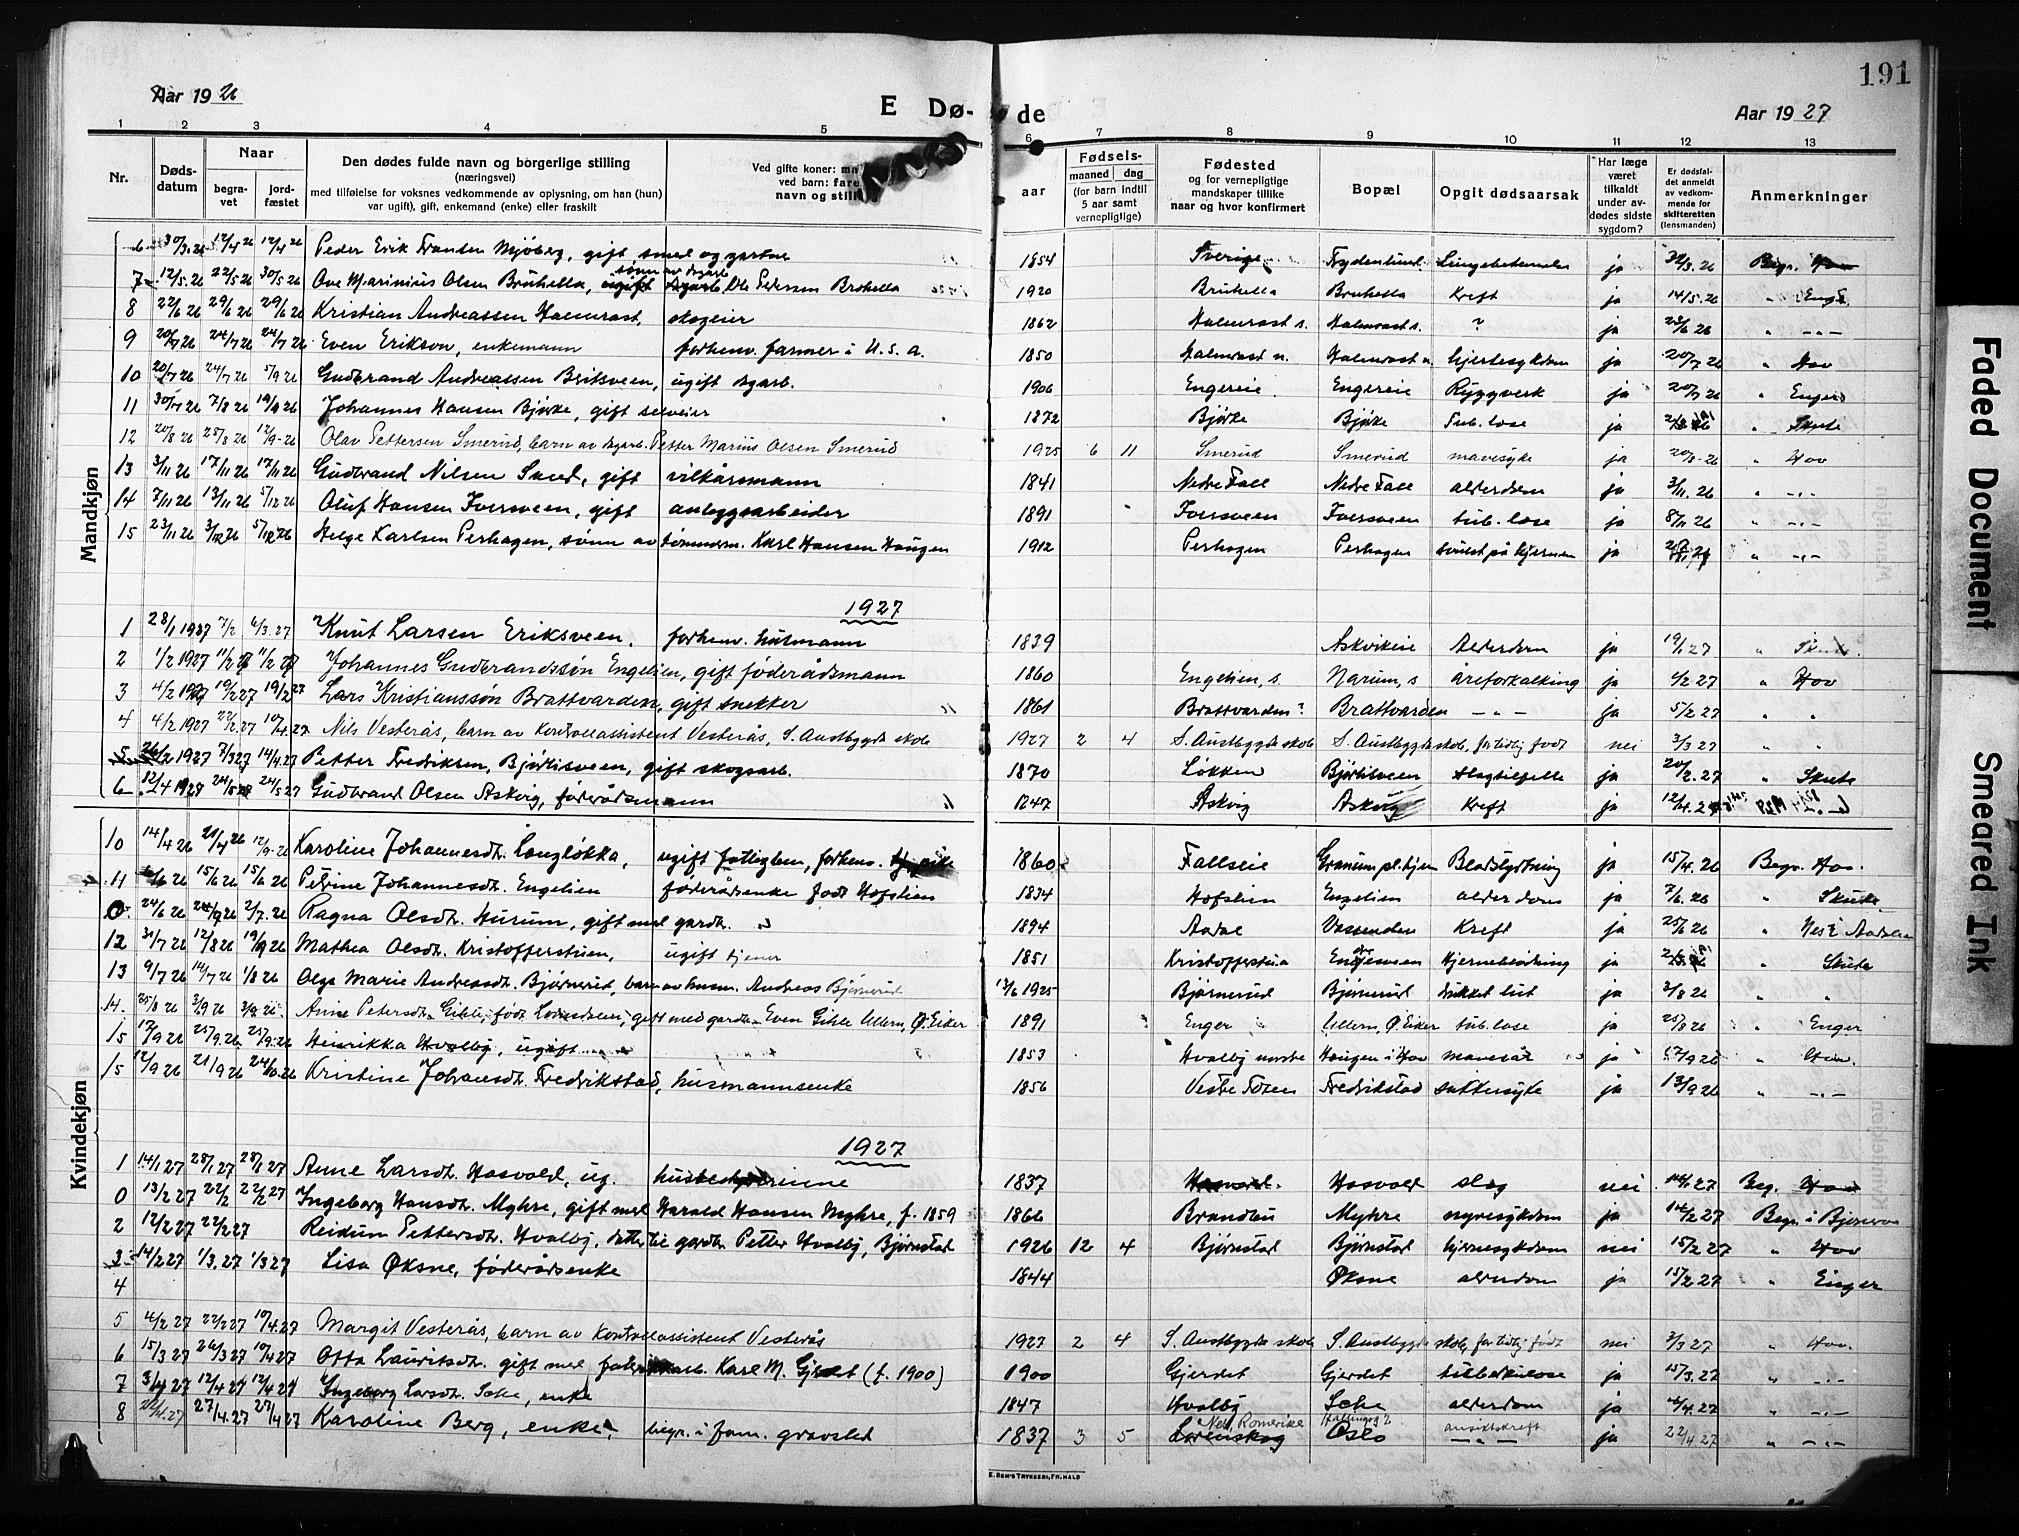 191
Aar 1926
E Dø-
de
Aar 1927
1 2 3 4 5 6 7 8 9 10 11 12 13
Nr.
Døds-
datum
Naar
begra-
vet
jord-
fæstet
Den dødes fulde navn og borgerlige stilling
(næringsvei)
med tilføielse for voksnes vedkommende av oplysning, om han (hun)
var ugift), gift, enkemand (enke) eller fraskilt
Ved gifte koner:
ved barn:
navn og
aar
Fødsels-
maaned dag
(for barn indtil
5 aar samt
vernepligtige)
Fødested
og for vernepligtige
mandskaper tillike
naar og hvor konfirmert
Bopæl
Opgit dødsaarsak
Har læge
været
tilkaldt
under av-
dødes sidste
sygdom?
Er dødsfal-
det anmeldt
av vedkom-
mende for
skifteretten
(lensmanden)
Anmerkninger
Mandkjøn
6 30/3.26 12/4 26 12/4 26 Peder Erik Mjøberg, gift smed og gartner 1854 Sverige Frydenlund ja Begr. Hov
7 12/5.26 22/5 26 30/5 26 Ove Marinius Olsen Bruhella, 1920 Bruhella Bruhella Kreft ja 14/5.26 " Enger
8 22/6 26 29/6 26 29/6 26 Kristian Andreassen Halmrast, skogeier 1862 Halmrast s. Halmrast s. ? ja 23/6 26 " -"-
9 20/7 26 24/7 26 24/7 26 Even Erikson, enkemann forhenv. farmer i U.S.A. 1850 Halmrast n. Halmrast n. hjertesykdom ja 20/7 26 " Hov
10 20/7 26 24/7 26 5/9 26 Gudbrand Andreassen Britsveen, ugift dgarb. 1906 Engereie Engereie Ryggverk ja 20/7 26 " Enger
11 30/7 26 7/8 26 19/9 26 Johannes Hansen Bjørke, gift selveier 1872 Bjørke Bjørke Tub.lose ja " Skute
12 20/8 26 25/8 26 12/9-26 Olav Pettersen Smerud, barn av dgarb. Petter Marius Olsen Smerud 1925 6 11 Smerud Smerud mavesyke ja 20/8-26 " Hov
13 3/11 26 17/11 26 17/11 26 Gudbrand Nilsen gift vilkårsmann 1841 Nedre Fall Nedre Fall alderdom ja 3/11.26 " -"-
14 7/11 26 13/11 26 5/12 26 Oluf Hansen Iversveen, gift anleggsarbeider 1891 Iversveen Iversveen tub.lose ja 8/11 26 " -"-
15 23/11 26 3/12 26 5/12 26 Helge Karlsen Perhagen, sønn av tømmerm. Karl Hansen Haugen 1912 Perhagen Perhagen svulst på hjernen ja " -"-
1927
1 28/1 1927 7/2 6/3.27 Knut Larsen Eriksveen. forhenv. husmann 1839 Askvikeie Alderdom ja 19/1 27 " Skute
2 1/2 1927 11/2 27 11/2 27 Johannes Gudbrandssøn Engelien, gift føderådsmann 1860 Engelien, s. Narum, s åreforkalking ja 4/2 27 " Hov
3 4/2 1927 19/2 27 19/2 27 Lars Kristianssøn Brattvarden, gift snekker 1861 Brattvarden? Brattvarden -"- ja 5/2 27 " "
4 4/2 1927 22/2.27 10/4.27 Nils Vesterås, barn av Kontrollassistent Vesterås, S. Austbygda skole 1927 2 4 S. Austbygda skole S. Austbygda skole, for tidlig født nei 3/3 27 " "
5 26/2 1927 7/3 27 14/4.27 Petter Fredriksen, Bjørlisveen, gift skogsarb. 1870 Løkken Bjørlisveen slagtilfelle ja 20/2.27 " Skute
6 12/4 1927 24/5 27 24/5 27 Gudbrand Olsen Askvig, føderådsmann 1847 Askvig Askvig Kreft ja 12/4.27
Kvindekjøn
10 14/4 26 21/4 26 12/9.26 Karoline Johannesdt. Langløkka, ugift fattiglem, forhenv. 1860 Fallseie Granum pl.hjem Blodstyrtning ja 15/4.26 Begr. Hov.
11 6/6 26 15/6 26 15/6 26 Petrine Johannesdt. Engelien føderådsenke født Hofslien 1834 Hofslien Engelien alderdom ja 7/6.26 " Skute
0 24/6 26 2/7.26 Ragna Olsdt. Hurum, gift med gardbr. 1894 Aadal Vassenden Kreft ja 25/6 26 " Nes i Aadalen
12 31/7 26 12/8 26 19/9 26 Mathea Olsdt. Kristofferstuen, ugift tjener 1851 Kristofferstua hjerneblødning ja " Skute
13 9/7 26 14/7 26 1/8 26 Olga Marie Andreasdt. Bjørnerud, barn av husm. Andreas Bjørnerud 13/6 1925 Bjørnerud Bjørnerud drukket lut ja 3/8 26 " "
14. 25/8 26 3/9 26 3/9 26 Anne Petersdt. Gihle, født gift med gardbr. Even Gihle Ullern, Ø. Eiker 1891 Enger Ullern, Ø. Eiker tub.lose ja 25/8 26 " Enger
15 17/9 26 25/9.26 25/9.26 Heinrikka Hvalby, ugift 1853 Hvalby nordre Haugen i Hov mavesår ja 17/9 26 " Hov.
15 12/9 26 21/9 26 24/10.26 Kristine Johansdt. Fredrikstad, husmannsenke 1856 Vestre Toten Fredrikstad sukkersyke ja 13/9 26 " -"-
1927
1 14/1 27 28/1 27 28/1 27 Anne Larsdt. Hasvold, ug. husbestyrerinne 1837 Hasvold slag nei 14/1 27 Beg. Hov
0 13/2 27 22/2 22/2 27 Ingeborg Hansdt. Myhre, gift med Harald Hansen Myhre, f. 1859 1866 Brandbu Myhre nyresykdom ja 14/2 27 Begr. i Bjoneroa
2 12/2.27 22/2 27 Reidun Pettersdt. Hvalby, datter til gardbr. Petter Hvalby, Bjørnstad 1926 12 4 Bjørnstad Bjørnstad hjernesykdom nei 15/2 27 " Hov
3 14/2 27 1/3.27 1/3 27 Lisa Øksne, føderådsenke 1844 Øksne alderdom ja 15/2 27 " Enger
4
5 4/2 27 22/2 27 10/4.27 Margit Vesterås, barn av Kontrollassistent Vesterås 1927 2 4 S. Austbygda skole S. Austbygda skole, for tidlig født nei 3/3 27 " Hov.
6 15/3 27 26/3 27 10/4 27 Otta Lauritsdt. gift med Karl M. Gjerdet (f. 1900) 1900 Gjerdet Gjerdet tuberkulose ja 15/3.27 " -"-
7 3/4 27 12/4 27 12/4 27 Ingeborg Larsdt. enke 1847 Hvalby alderdom ja 4/4.27 " -"-
8 27/4.27 27/4 27 Karoline Berg, enke, begr. i fam. gravsted 1837 3 5 Nes, Romerike Lørenskog Oslo ansiktskreft ja 22/4 27 " -"-
E. Sem's Trykkeri, Fr.hald
Faded Document
Smeared Ink